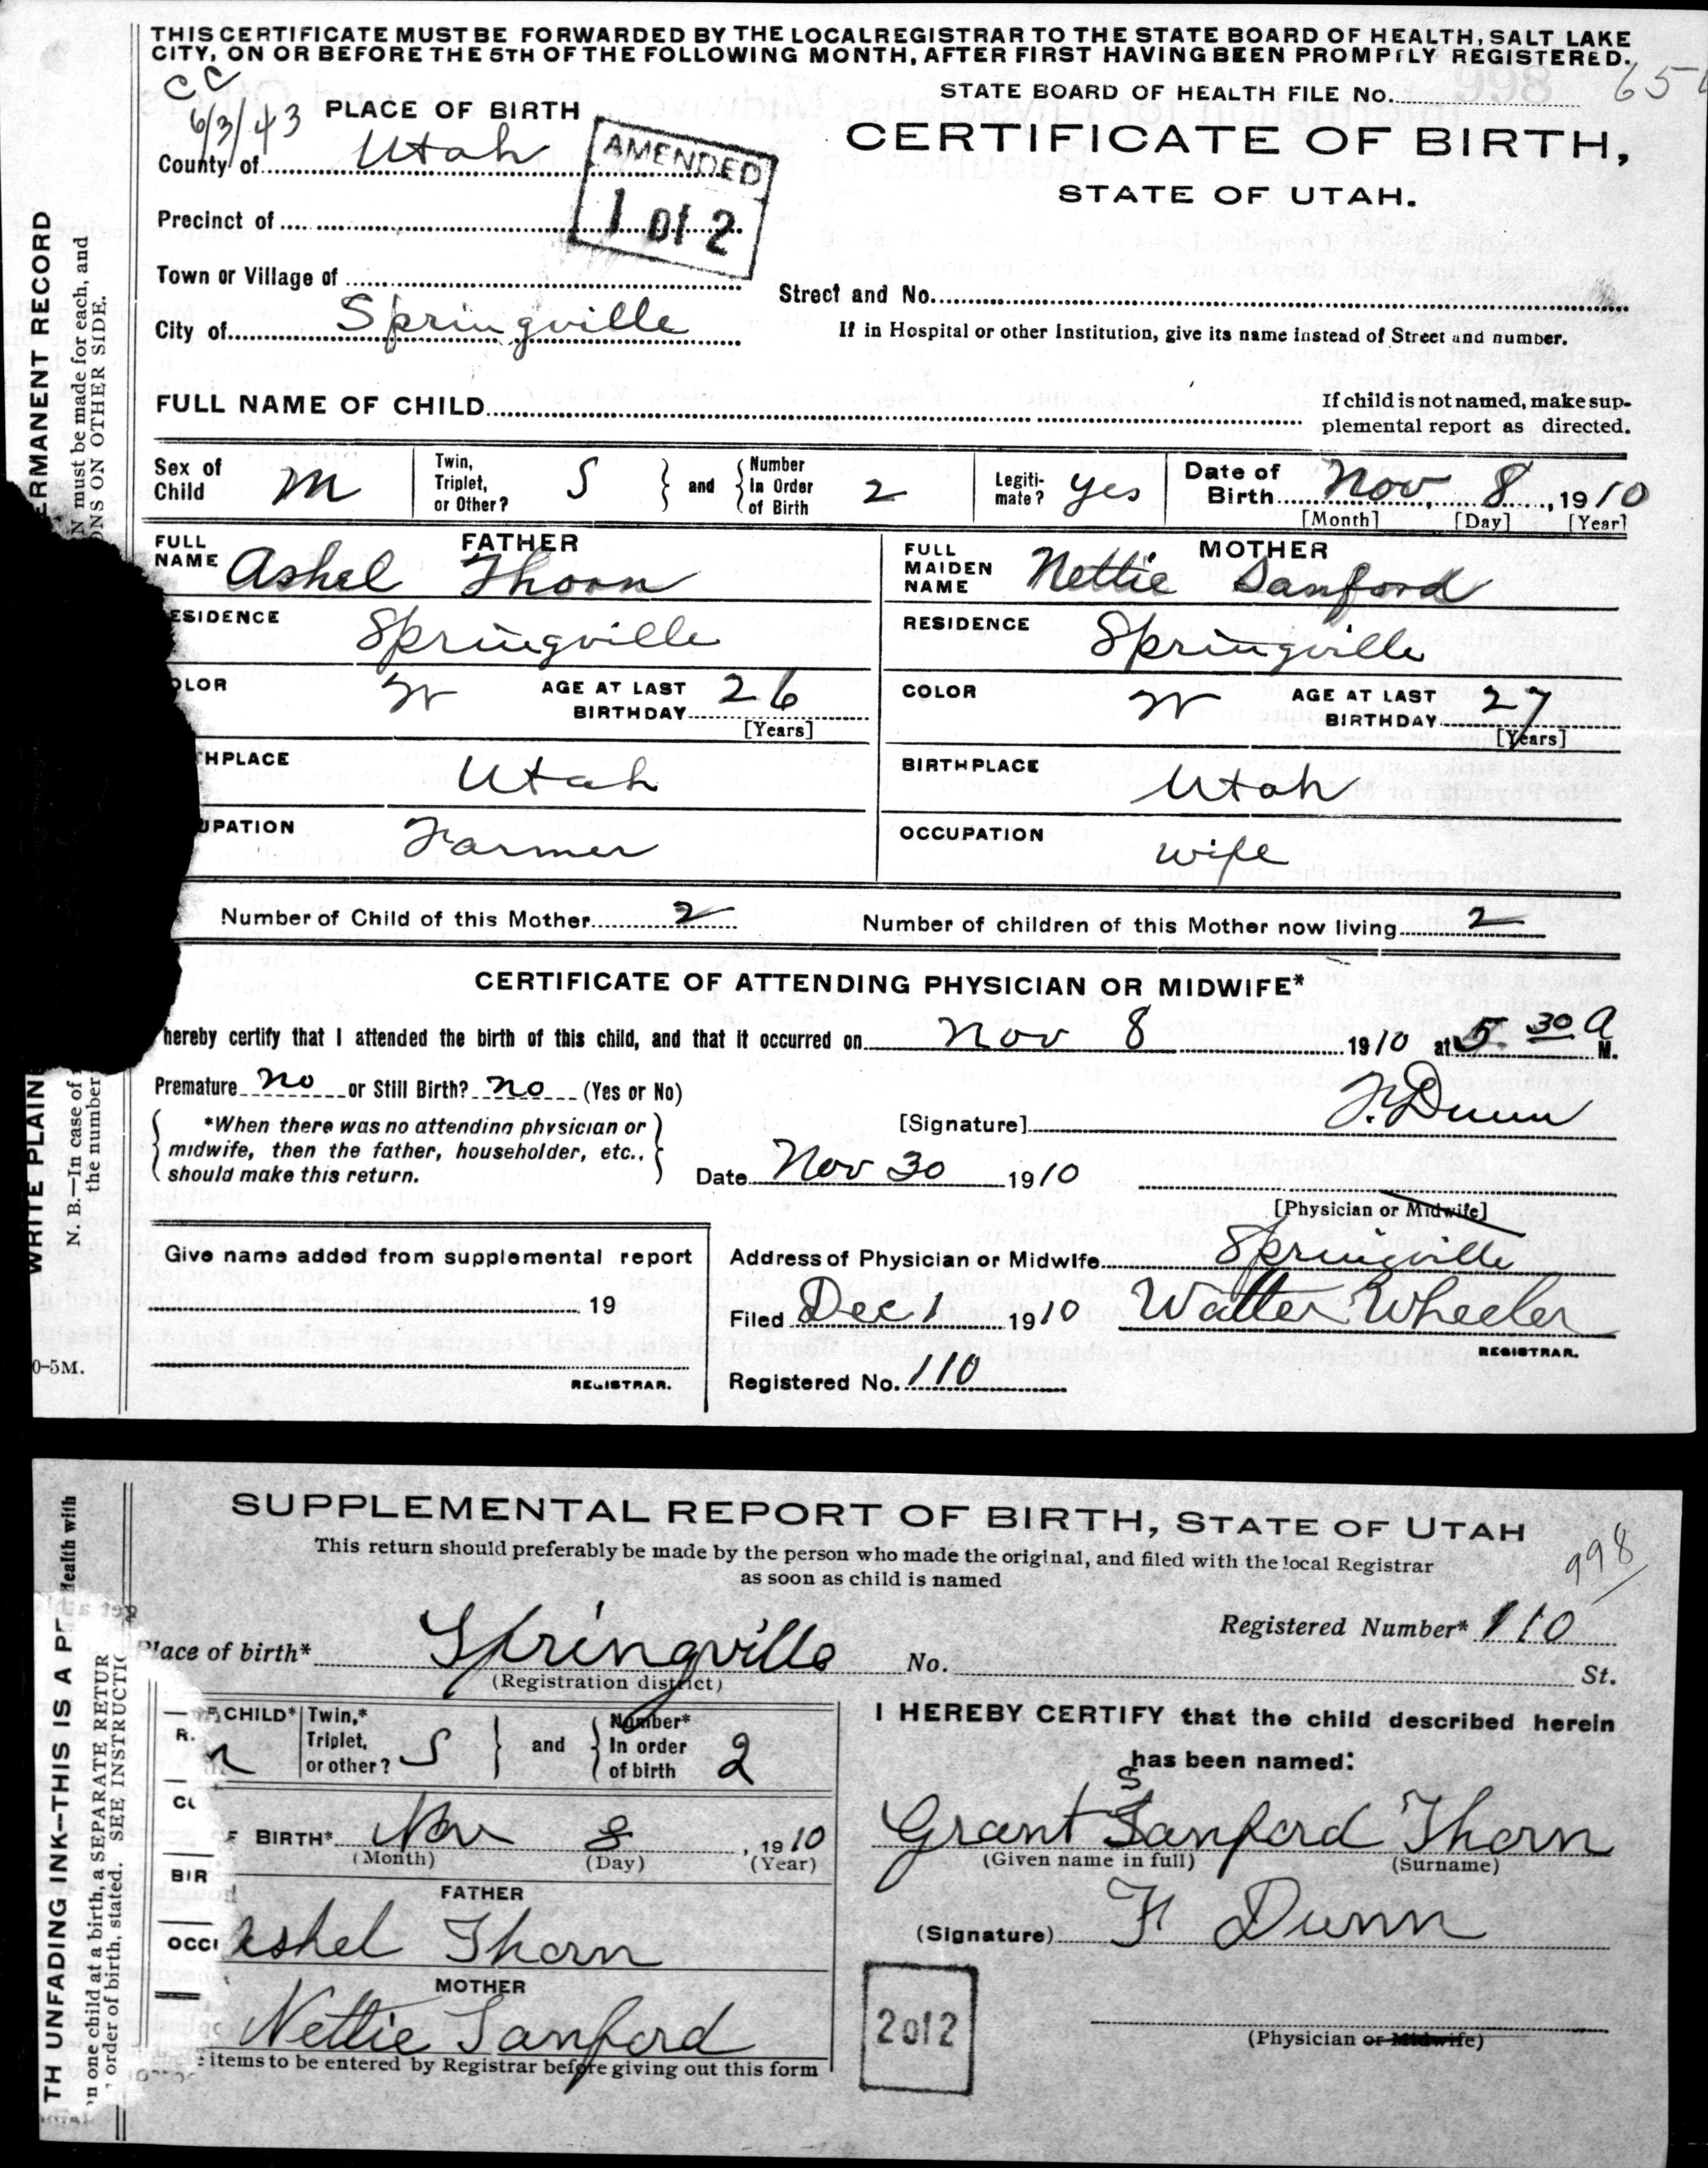 THIS CERTIFICATE MUST BE FORWARDED BY THE LOCAL REGISTRAR TO THE STATE BOARD OF HEALTH, SALT LAKE
CITY, ON OR BEFORE THE 5TH OF THE FOLLOWING MONTH, AFTER FIRST HAVING BEEN PROMPTLY REGISTERED.
CC
6/3/43
STATE BOARD OF HEALTH FILE No.
PLACE OF BIRTH
CERTIFICATE OF BIRTH,
STATE OF UTAH.
County of Utah
AMENDED
1 of 2
Precinct of
Town or Village of
Street and No.
City of Springville
If in Hospital or other Institution, give its name instead of Street and number.
FULL NAME OF CHILD
If child is not named, make sup-
plemental report as directed.
Sex of Child M
Twin, Triplet, or Other? S and Number In Order of Birth 2
Legiti-mate? yes
Date of Birth Nov 8, 1910
[Month] [Day] [Year]
FATHER
FULL NAME Ashel Thorn
MOTHER
FULL MAIDEN NAME Nettie Sanford
ESIDENCE Springville
RESIDENCE Springville
OLOR W AGE AT LAST BIRTHDAY 26
[Years]
COLOR W AGE AT LAST BIRTHDAY 27
[Years]
HPLACE Utah
BIRTHPLACE Utah
UPATION Farmer
OCCUPATION wife
Number of Child of this Mother 2
Number of children of this Mother now living 2
CERTIFICATE OF ATTENDING PHYSICIAN OR MIDWIFE*
hereby certify that I attended the birth of this child, and that it occurred on Nov 8 1910 at 5 30 A M.
Premature no or Still Birth? no (Yes or No)
*When there was no attending physician or
midwife, then the father, householder, etc.,
should make this return.
[Signature] F. Dunn
Date Nov 30 1910
[Physician or Midwife]
Give name added from supplemental report
19
REGISTRAR.
Address of Physician or Midwife Springville
Filed Dec 1 1910 Walter Wheeler
REGISTRAR.
Registered No. 110
ERMANENT RECORD
N must be made for each, and
ONS ON OTHER SIDE.
WRITE PLAIN
N. B.—In case of
the number
0-5M.
SUPPLEMENTAL REPORT OF BIRTH, STATE OF UTAH
This return should preferably be made by the person who made the original, and filed with the local Registrar
as soon as child is named
998
Registered Number* 110
lace of birth* Springville No. St.
(Registration district)
CHILD*
Twin,* Triplet, or other? S and Number* In order of birth 2
I HEREBY CERTIFY that the child described herein
has been named:
S
Grant Sanford Thorn
(Given name in full) (Surname)
F BIRTH* Nov 8, 1910
(Month) (Day) (Year)
FATHER
Ashel Thorn
(Signature) F Dunn
MOTHER
Nettie Sanford
2 of 2
(Physician or Midwife)
items to be entered by Registrar before giving out this form
R.
BIR
OCCI
Health with
TH UNFADING INK—THIS IS A P
n one child at a birth, a SEPARATE RETUR
order of birth, stated. SEE INSTRUCTI